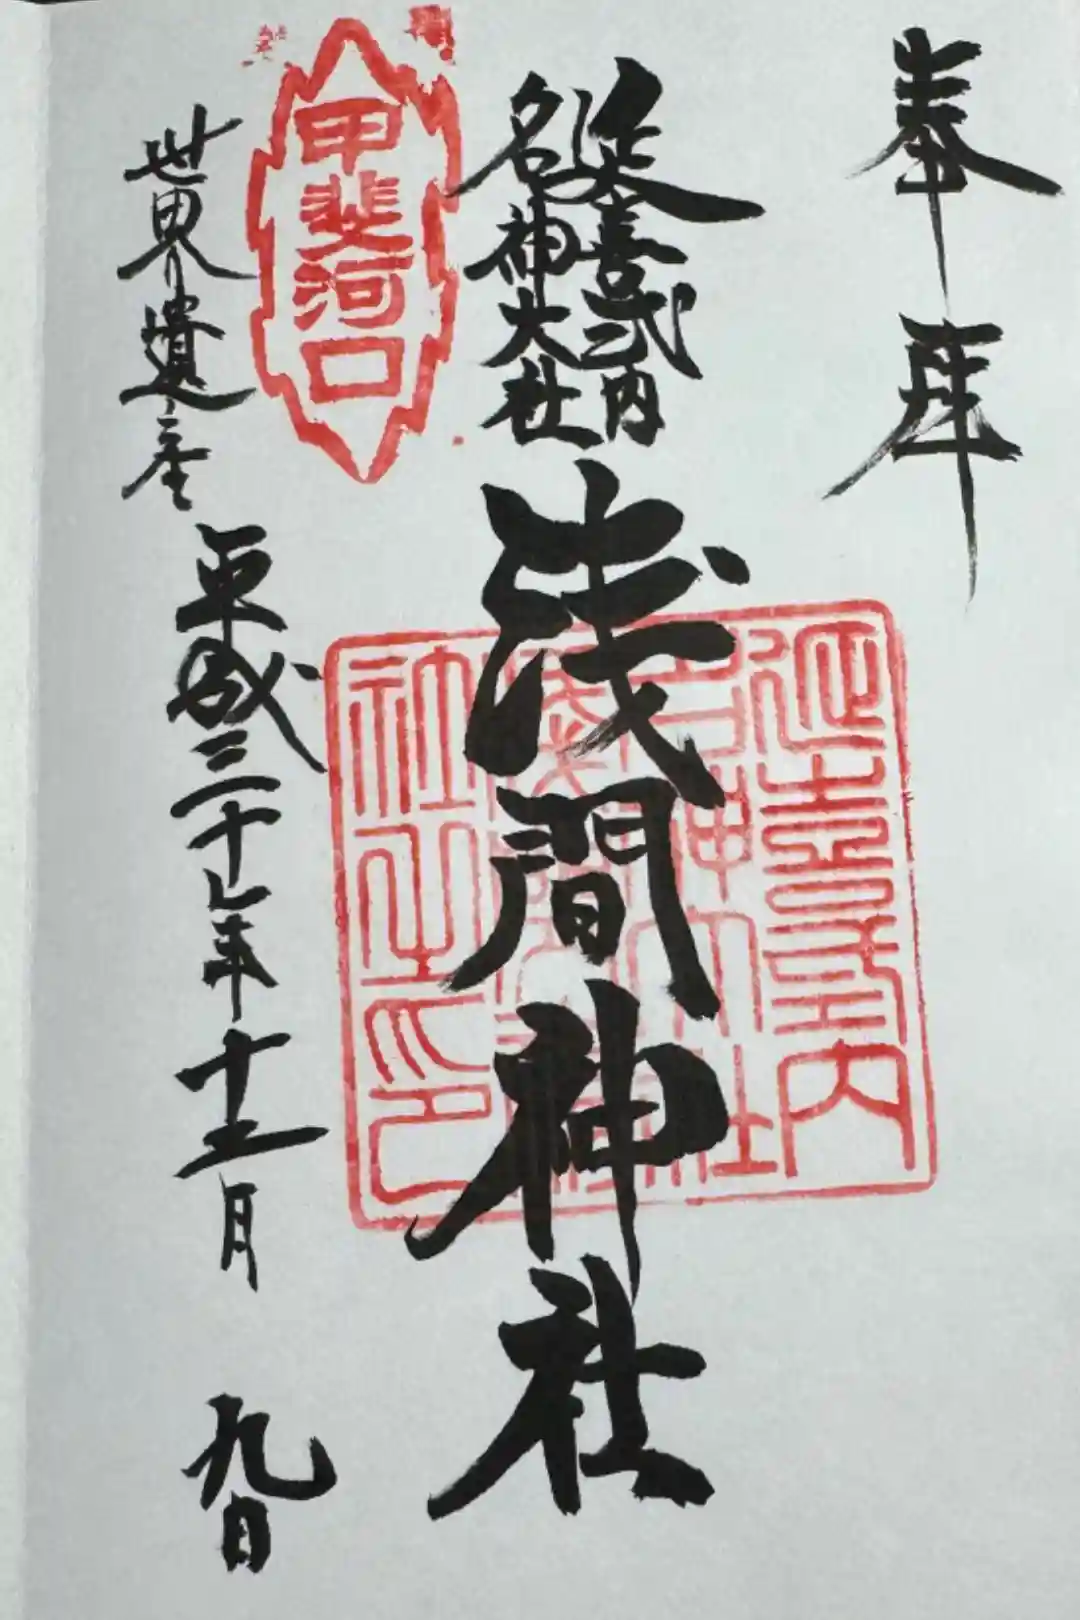 奉拝
延喜式内
名神大社
浅間神社
甲斐河口
世界遺産
平成三十年十二月
九日
延喜式内
名神大社
社之印